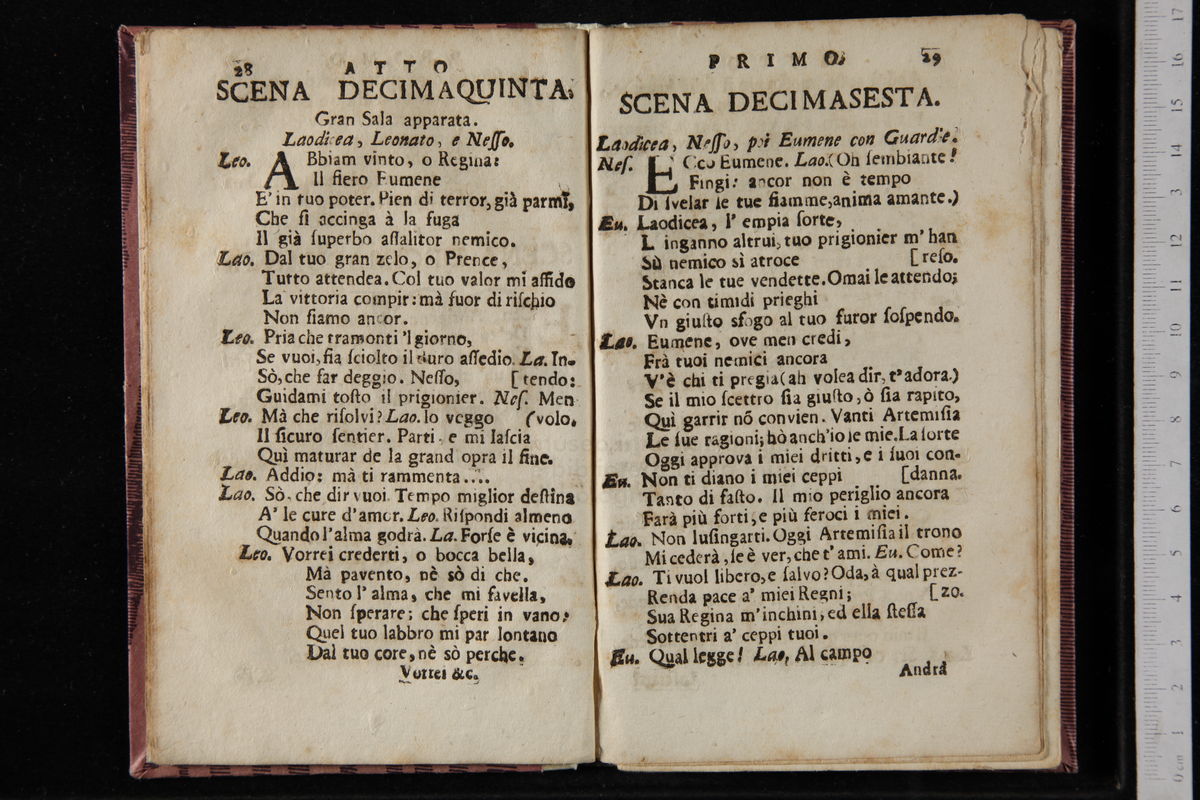 28 ATTO
SCENA DECIMAQUINTA.
Gran Sala apparata.
Laodicea, Leonato, e Nesso.
Leo. ABbiam vinto, o Regina:
Il fiero Eumene
E' in tuo poter. Pien di terror, già parmi,
Che si accinga à la fuga
Il già superbo assalitor nemico.
Lao. Dal tuo gran zelo, o Prence,
Tutto attendea. Col tuo valor mi affido
La vittoria compir: mà fuor di rischio
Non siamo ancor.
Leo. Pria che tramonti 'l giorno,
Se vuoi, fia sciolto il duro assedio. La. In-
Sò, che far deggio. Nesso, [tendo:
Guidami tosto il prigionier. Nes. Men
Leo. Mà che risolvi? Lao. Io veggo (volo.
Il sicuro sentier. Parti, e mi lascia
Quì maturar de la grand opra il fine.
Lao. Addio: mà ti rammenta....
Lao. Sò, che dir vuoi. Tempo miglior destina
A' le cure d'amor. Leo. Rispondi almeno
Quando l'alma godrà. La. Forse è vicina.
Leo. Vorrei crederti, o bocca bella,
Mà pavento, nè sò di che.
Sento l' alma, che mi favella,
Non sperare; che speri in vano:
Quel tuo labbro mi par lontano
Dal tuo core, nè sò perche.
Vorrei &c.
PRIMO. 29
SCENA DECIMASESTA.
Laodicea, Nesso, poi Eumene con Guardie.
Nes. ECco Eumene. Lao. (Oh sembiante!
Fingi: ancor non è tempo
Di svelar le tue fiamme, anima amante.)
Eu. Laodicea, l' empia sorte,
L inganno altrui, tuo prigionier m' han
Sù nemico sì atroce [reso.
Stanca le tue vendette. Omai le attendo;
Nè con timidi prieghi
Vn giusto sfogo al tuo furor sospendo.
Lao. Eumene, ove men credi,
Frà tuoi nemici ancora
V'è chi ti pregia (ah volea dir, t'adora.)
Se il mio scettro sia giusto, ò sia rapito,
Quì garrir nõ convien. Vanti Artemisia
Le sue ragioni; hò anch'io le mie. La sorte
Oggi approva i miei dritti, e i suoi con-
Eu. Non ti diano i miei ceppi [danna.
Tanto di fasto. Il mio periglio ancora
Farà più forti, e più feroci i miei.
Lao. Non lusingarti. Oggi Artemisia il trono
Mi cederà, se è ver, che t' ami. Eu. Come?
Lao. Ti vuol libero, e salvo? Oda, à qual prez-
Renda pace a' miei Regni; [zo.
Sua Regina m'inchini, ed ella stessa
Sottentri a' ceppi tuoi.
Eu. Qual legge! Lao. Al campo
Andrà